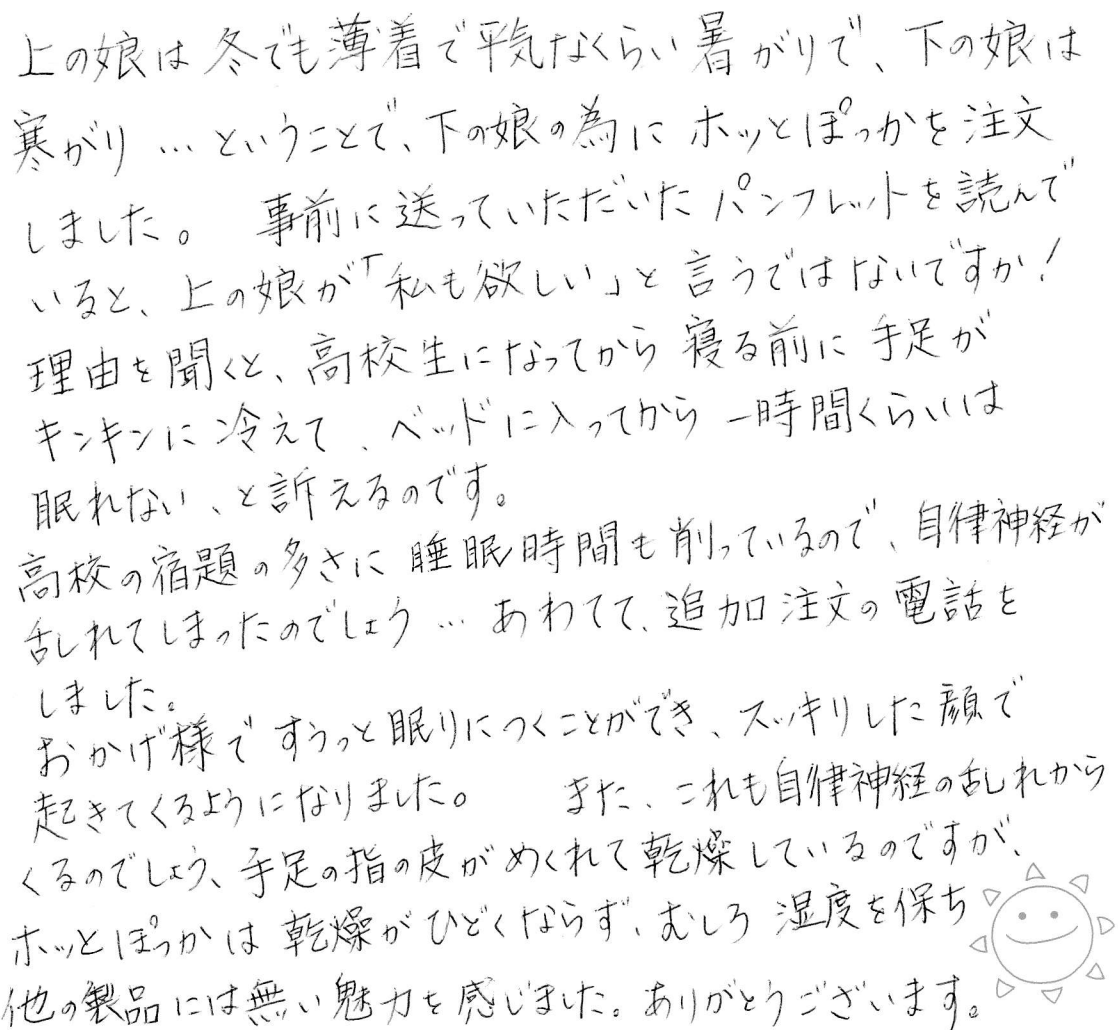 上の娘は冬でも薄着で平気なくらい暑がりで、下の娘は
寒がり…ということで、下の娘の為にホッとぽっかを注文
しました。 事前に送っていただいたパンフレットを読んで
いると、上の娘が「私も欲しい」と言うではないですか!
理由を聞くと、高校生になってから寝る前に手足が
キンキンに冷えて、ベッドに入ってから一時間くらいは
眠れない、と訴えるのです。
高校の宿題の多さに睡眠時間も削っているので、自律神経が
乱れてしまったのでしょう…あわてて、追加注文の電話を
しました。
おかげ様ですうっと眠りにつくことができ、スッキリした顔で
起きてくるようになりました。 また、これも自律神経の乱れから
くるのでしょう、手足の指の皮がめくれて乾燥しているのですが、
ホッとぽっかは乾燥がひどくならず、むしろ湿度を保ち
他の製品には無い魅力を感じました。ありがとうございます。